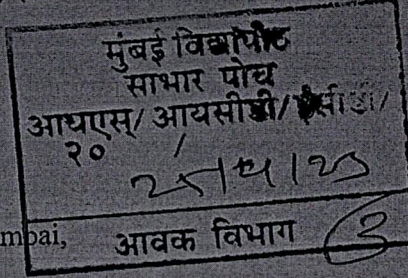 मुंबई विद्यापीठ
साभार पोच
आयएस/ आयसीडी/
२० /
mbai, आवक विभाग